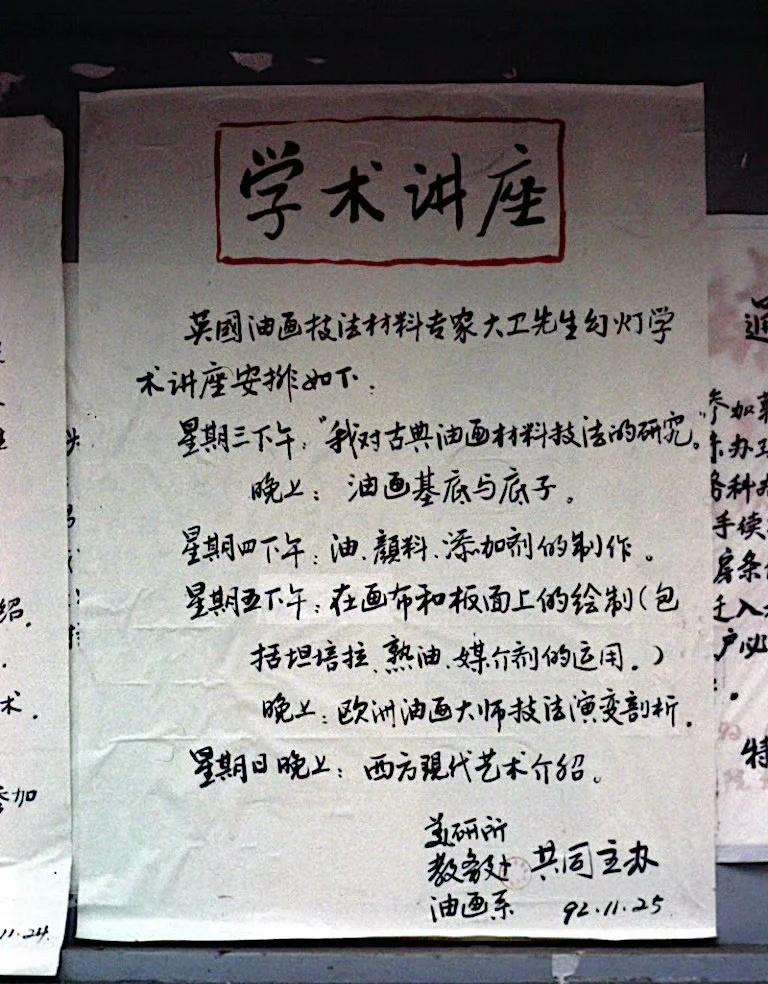 学术讲座
英國油画技法材料专家大卫先生幻灯学
术讲座安排如下.
星期三下午:“我对古典油画材料技法的研究。”
晚上: 油画基底与底子。
星期四下午: 油、顏料、添加剂的制作。
星期五下午: 在画布和板面上的绘制(包
括坦培拉、熟油、媒介剂的运用。)
晚上: 欧洲油画大师技法演变剖析.
星期日晚上: 西方現代艺术介绍。
美研所
教务处 共同主办
油画系 92.11.25
绍.
术.
参加
11.24
通
参加
办
科
手续
房条
迁入
户必
特